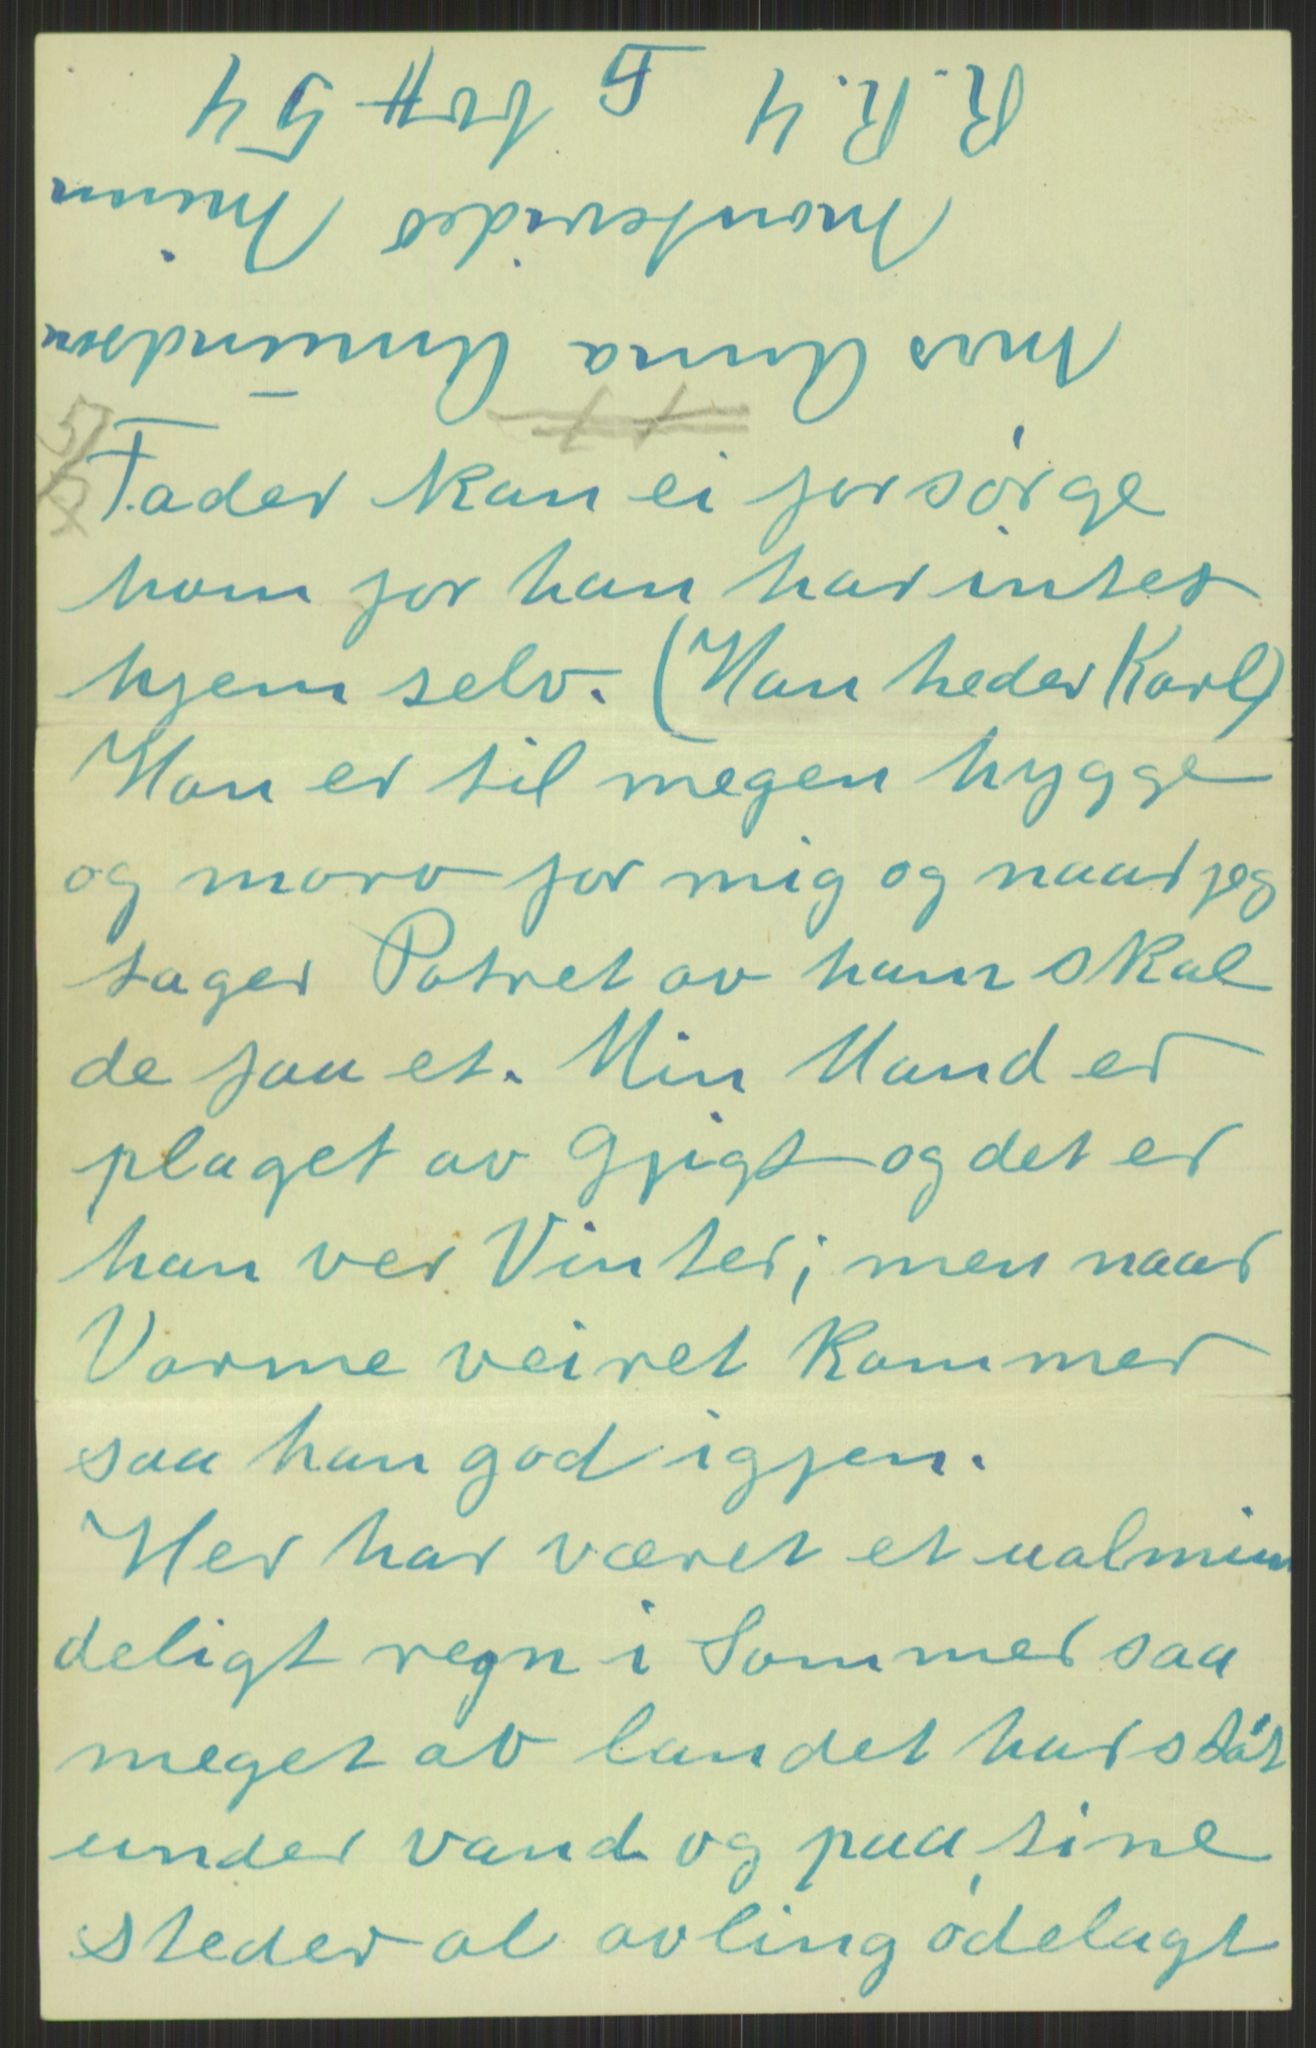 Mrs Anna Amundson
Montevideo Minn
R.R. 4 Box # 54
Fader kan ei forsørge
ham for han har intet
hjem selv. (Han heder Karl)
Han er til megen hygge
og moro for mig og naar jeg
tager Potret av ham skal
de faa et. Min Mand er
plaget av Gjigt og det er
han ver Vinter; men naar
Varme veiret kommer
saa han god igjen.
Her har været et ualmin
deligt regn i Sommer saa
meget av landet har ståt
under vand og paa sine
steder al avling ødelagt